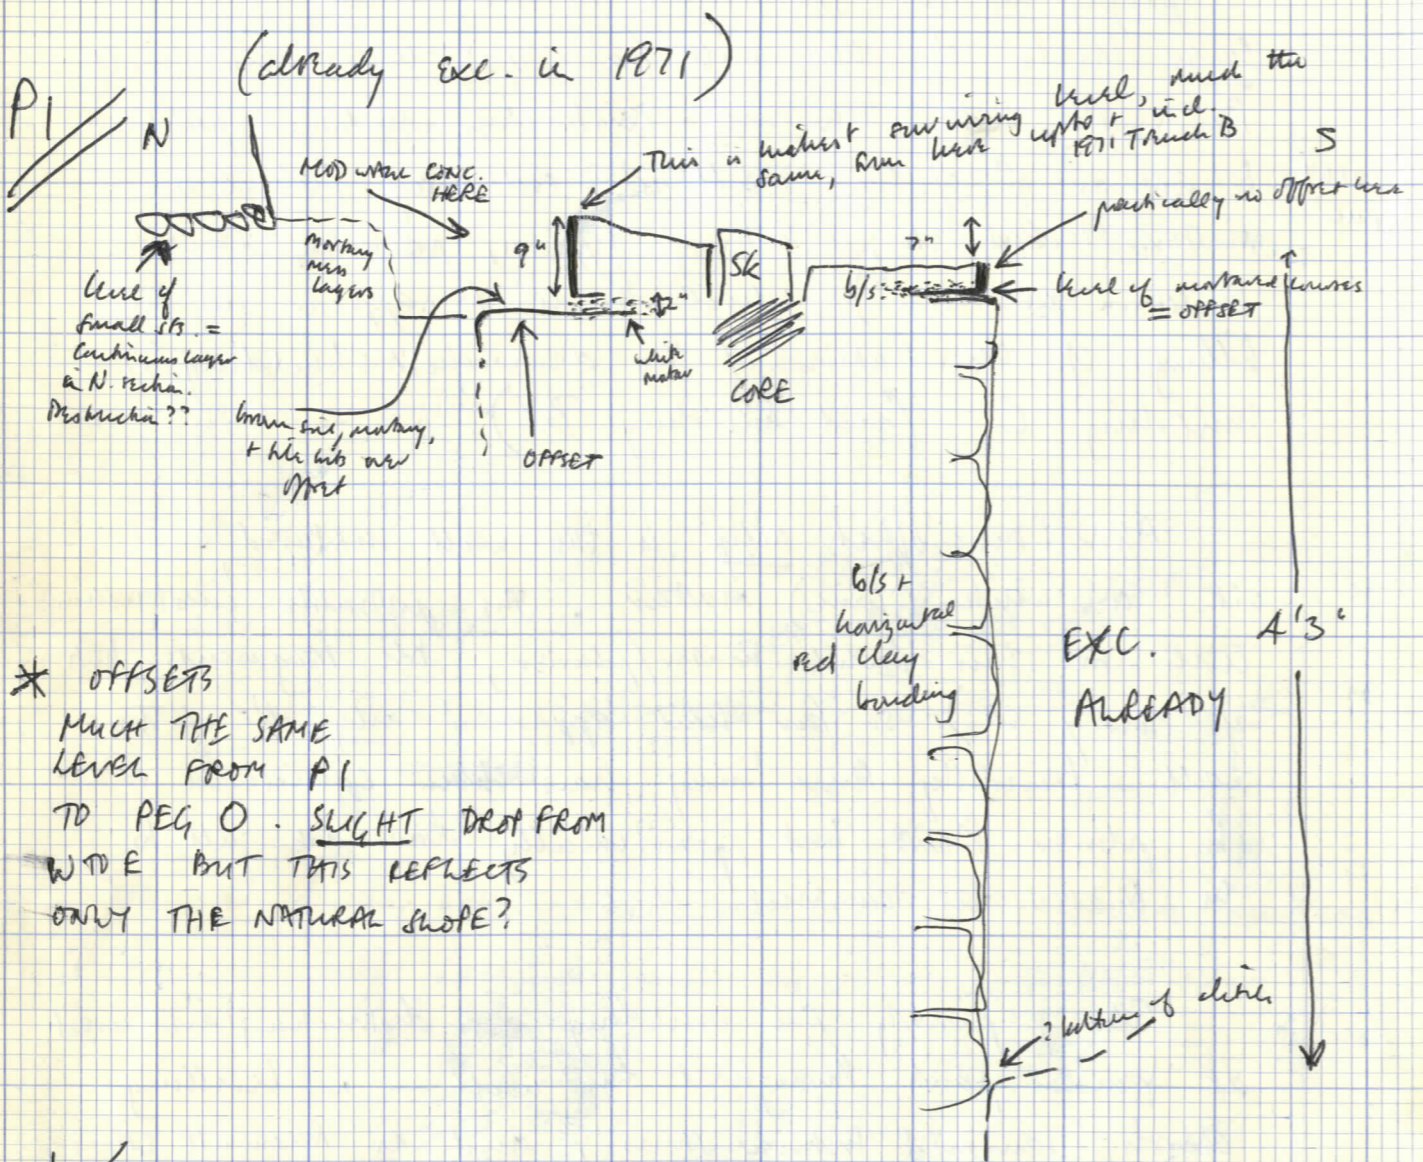 (already exc. in 1971)
P1
N
S
MOD WALL CONC.
HERE
This is highest surviving level, much the
same, from here up to + incl.
1971 Trench B
practically no offset here
7"
9"
SK
b/s
2"
level of mortared courses
= OFFSET
mortary
layers
level of
small sts. =
continuous layer
in N. section.
Destruction??
white
mortar
CORE
brown soil, mortary,
+ tile bits over
offset
OFFSET
b/s +
horizontal
red clay
bonding
EXC.
ALREADY
4'3"
* OFFSETS
MUCH THE SAME
LEVEL FROM P1
TO PEG O. SLIGHT DROP FROM
W TO E BUT THIS REFLECTS
ONLY THE NATURAL SLOPE?
? bottom of ditch